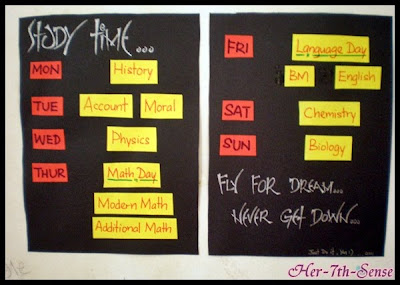 STUDY TIME...
MON History
TUE Account Moral
WED Physics
THUR Math Day
Modern Math
Additional Math
FRI Language Day
BM English
SAT Chemistry
SUN Biology
FLY FOR DREAM...
NEVER GET DOWN...
Just Do It,
Her-7th-Sense